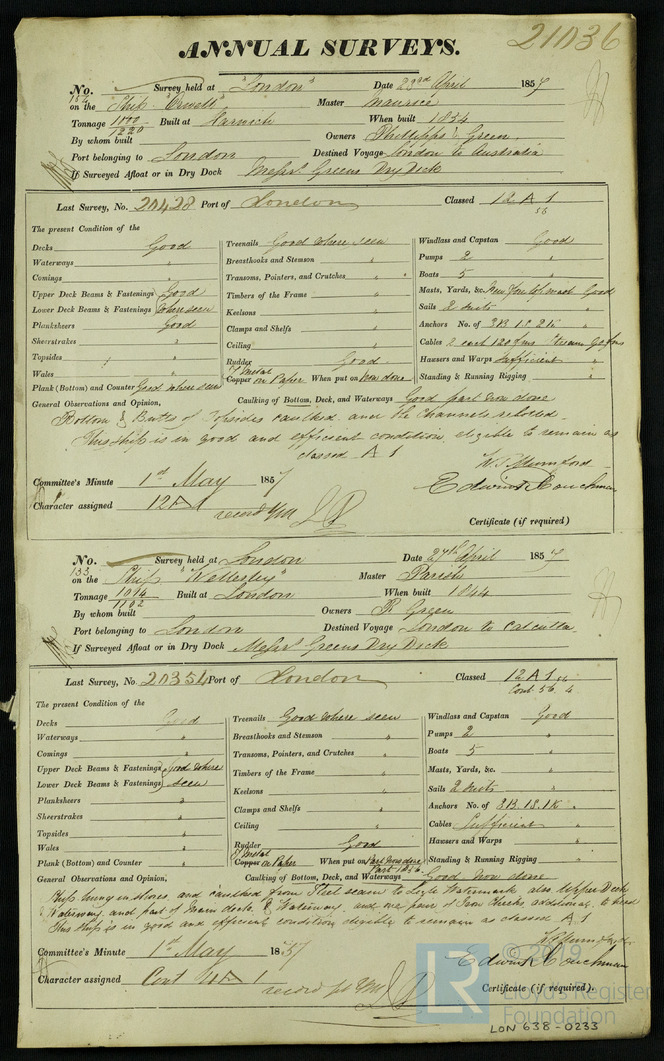 21036
ANNUAL SURVEYS.
No. 154 Survey held at "London" Date 23rd April 1857
on the Ship "Orwell" Master Maurice
Tonnage 1220 Built at Harwich When built 1834
By whom built Owners Phillipps & Green
Port belonging to London Destined Voyage London to Australia
If Surveyed Afloat or in Dry Dock Messrs Greens Dry Dock
Last Survey, No. 20428 Port of London Classed 12 A 1
56
The present Condition of the
Decks Good
Waterways "
Comings "
Upper Deck Beams & Fastenings Good
Lower Deck Beams & Fastenings where seen
Planksheers Good
Sheerstrakes "
Topsides "
Wales "
Plank (Bottom) and Counter Good where seen
Treenails Good where seen
Breasthooks and Stemson "
Transoms, Pointers, and Crutches "
Timbers of the Frame "
Keelsons "
Clamps and Shelfs "
Ceiling "
Rudder Good
Y Metal
Copper on Paper When put on Now done
Windlass and Capstan Good
Pumps 2 "
Boats 5 "
Masts, Yards, &c. Good
Sails 2 suits "
Anchors No. of 3B. 1S. 2K "
Cables 2 each 120 fms Stream 90 fms
Hawsers and Warps Sufficient "
Standing & Running Rigging "
General Observations and Opinion, Caulking of Bottom, Deck, and Waterways Good part now done
Bottom & Butts of Topsides caulked and the Channels rebolted
This ship is in good and efficient condition, eligible to remain as
classed A 1
W. T. Mumford
Committee's Minute 1st May 1857
Edwin Couchman
Character assigned 12 A 1
record YM
Certificate (if required)
No. 133 Survey held at London Date 27th April 1857
on the Ship "Wellesley" Master Parish
Tonnage 1014 Built at London When built 1844
1102
By whom built Owners R Green
Port belonging to London Destined Voyage London to Calcutta
If Surveyed Afloat or in Dry Dock Messrs Greens Dry Dock
Last Survey, No. 20354 Port of London Classed 12 A 1
Cont 56. 4
The present Condition of the
Decks Good
Waterways "
Comings "
Upper Deck Beams & Fastenings Good where
Lower Deck Beams & Fastenings seen
Planksheers "
Sheerstrakes "
Topsides "
Wales "
Plank (Bottom) and Counter "
Treenails Good where seen
Breasthooks and Stemson "
Transoms, Pointers, and Crutches "
Timbers of the Frame "
Keelsons "
Clamps and Shelfs "
Ceiling "
Rudder Good
Y Metal
Copper on Paper When put on Part now done
Part 1856
Windlass and Capstan Good
Pumps 2 "
Boats 5 "
Masts, Yards, &c. "
Sails 2 suits "
Anchors No. of 3B. 1S. 1K "
Cables Sufficient "
Hawsers and Warps "
Standing & Running Rigging "
General Observations and Opinion, Caulking of Bottom, Deck, and Waterways Good now done
Ship hung in shores, and caulked from Keel seam to Light Watermark also Upper Deck
& Waterway and part of Main deck & Waterway and one pair of Iron additional to
This ship is in good and efficient condition eligible to remain as classed A 1
Committee's Minute 1st May 1857
Edwin Couchman
Character assigned Cont 4 A 1
record YM
Certificate (if required).
LR
© 2019
Lloyd's Register
Foundation
LON 638-0233